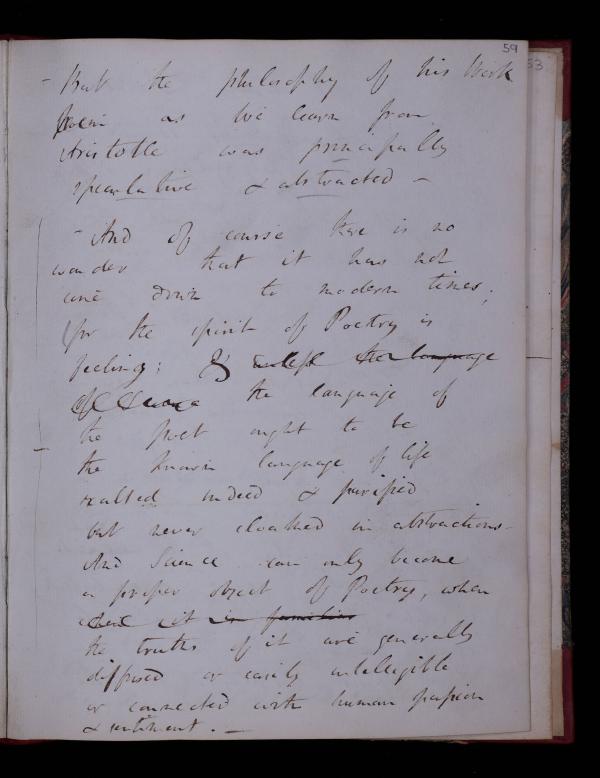 59
53
- But the philosophy of his Work
Poem as we learn from
Aristotle was principally
speculative & abstracted -
- And of course there is no
wonder that it has not
come down to modern times;
for the spirit of Poetry is
feeling; & unless the language
of Science the language of
the poet ought to be
the known language of life
exalted indeed & purified
but never cloathed in abstractions -
And Science can only become
a proper object of Poetry, when
when it is familiar
the truths of it are generally
diffused or easily intelligible
or connected with human passion
& sentiment. -